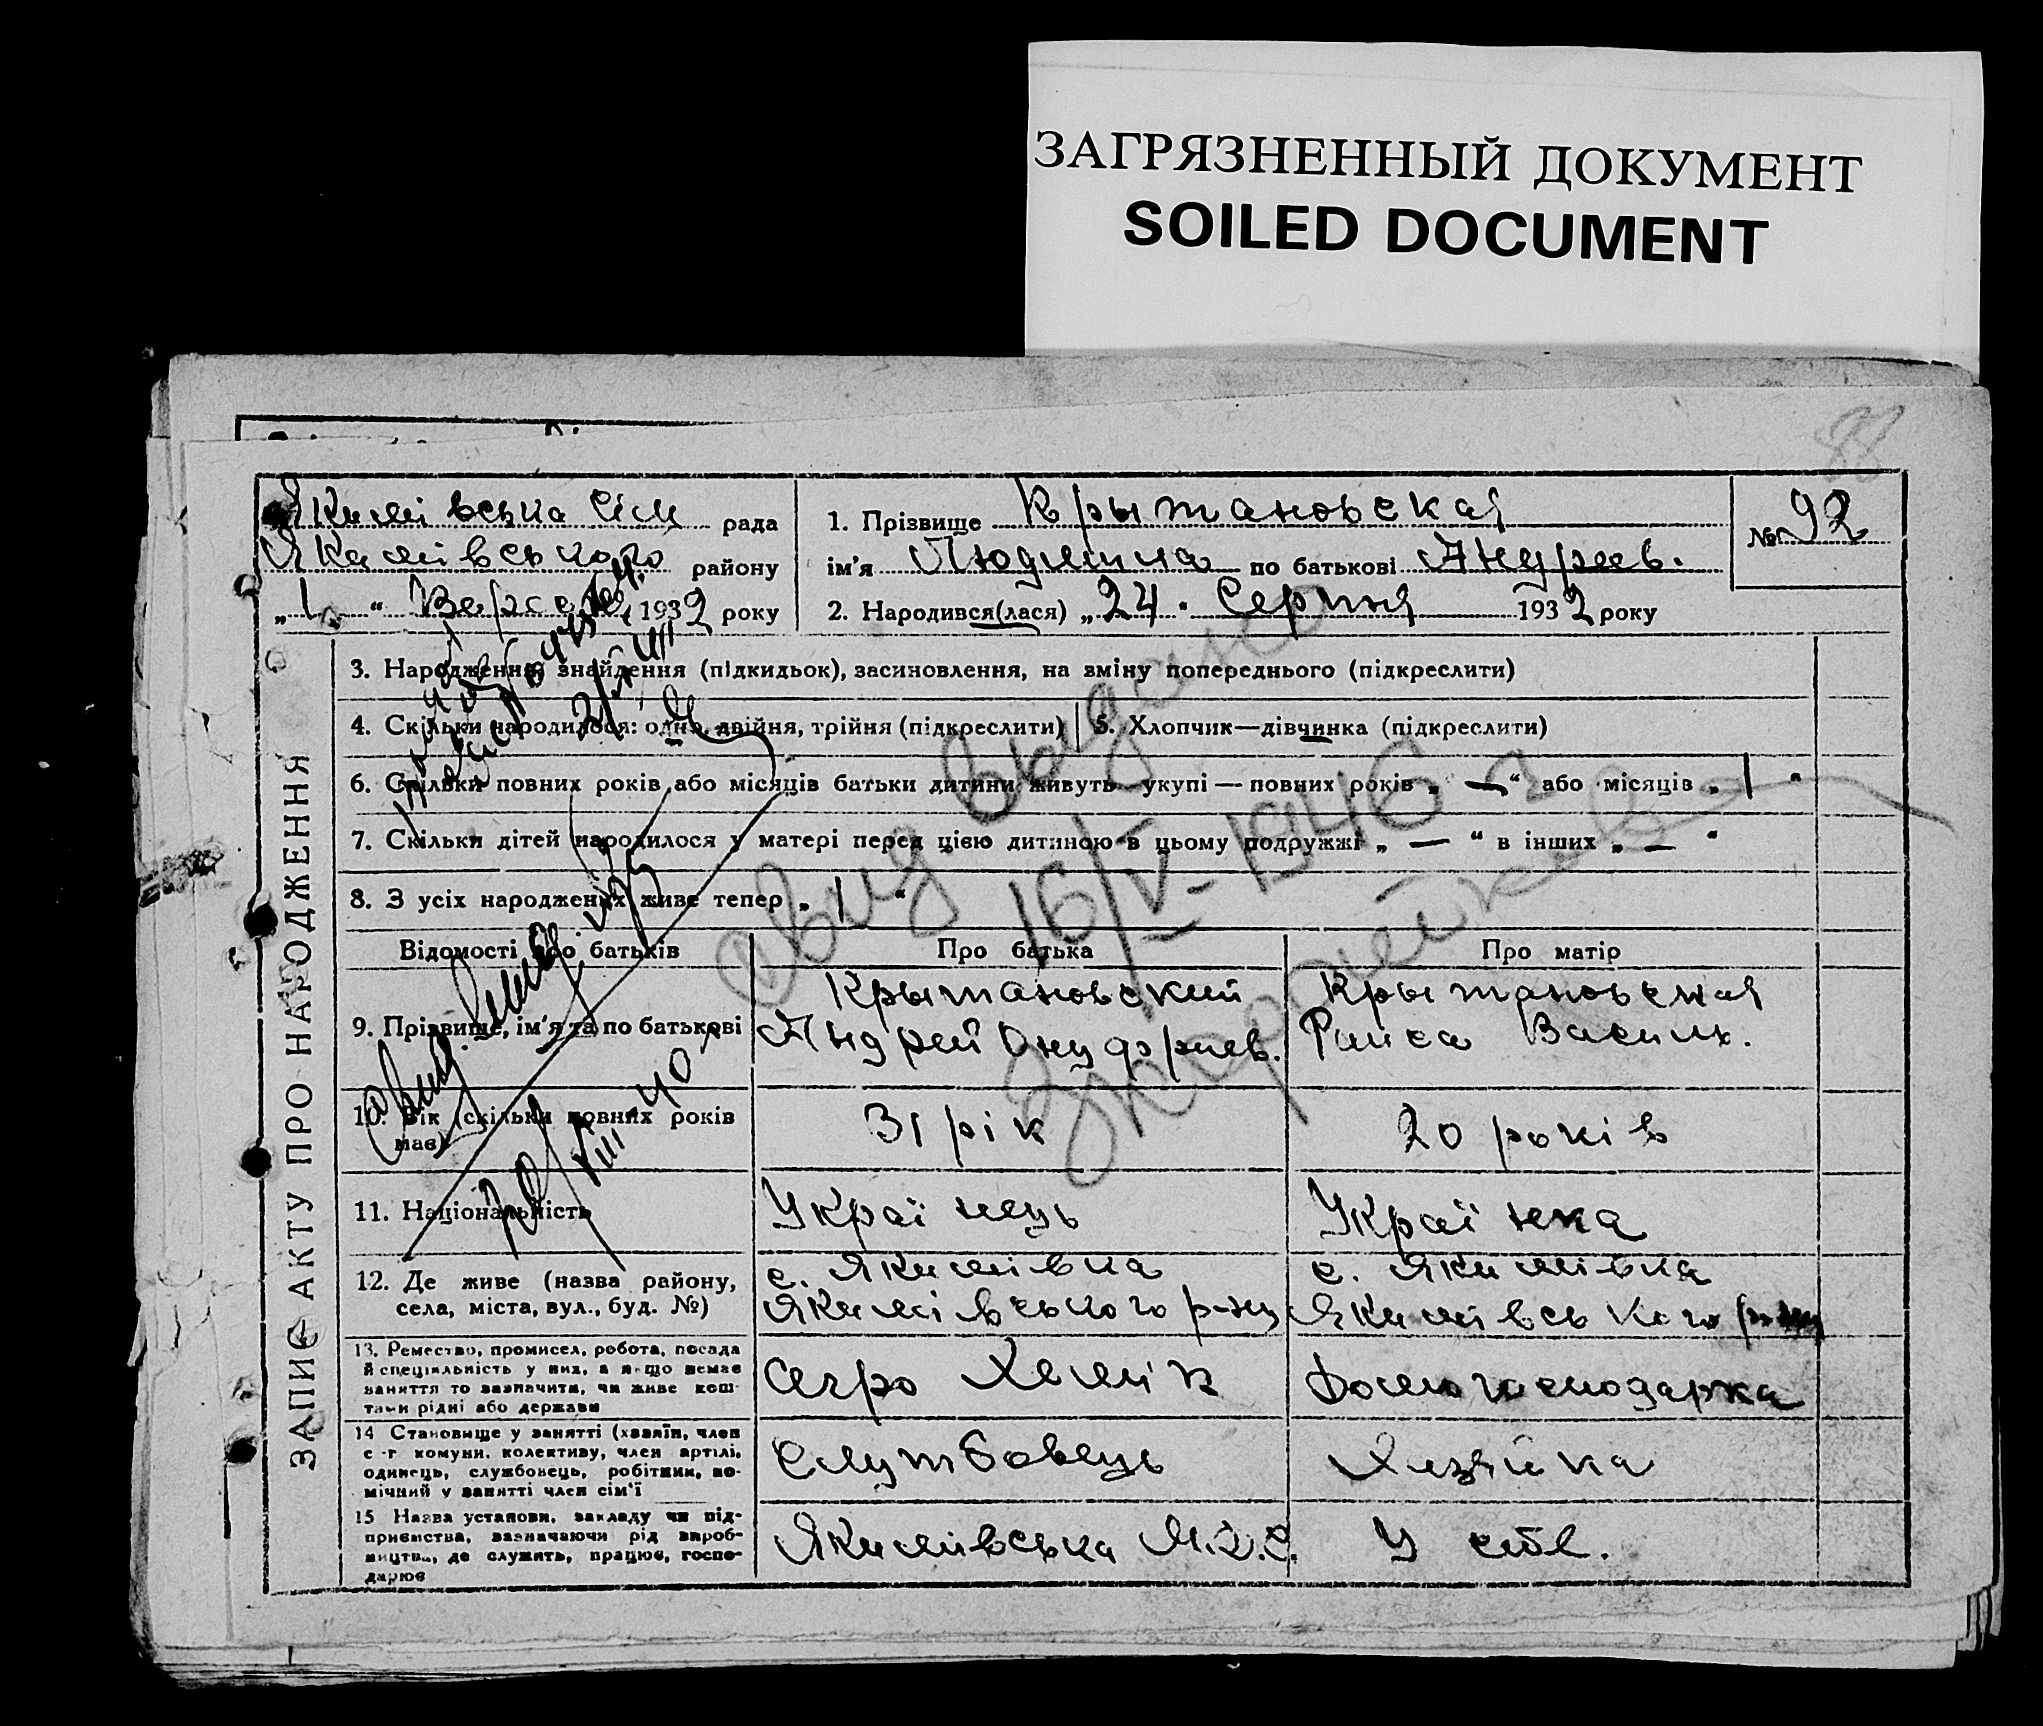 ЗАГРЯЗНЕННЫЙ ДОКУМЕНТ
SOILED DOCUMENT
88
Якимівська сіл рада
Якимівського району
„ 1 “ Вересня 1932 року
1. Прізвище Крыжановская
ім'я Людмила по батькові Андреев.
2. Народився(лася) „ 24 “ Серпня 1932 року
№ 92
ЗАПИС АКТУ ПРО НАРОДЖЕННЯ
3. Народження, знайдення (підкидьок), засиновлення, на зміну попереднього (підкреслити)
4. Скільки народилося: одно, двійня, трійня (підкреслити)
5. Хлопчик—дівчинка (підкреслити)
6. Скільки повних років або місяців батьки дитини живуть укупі — повних років „ — “ або місяців „ 1 “
7. Скільки дітей народилося у матері перед цією дитиною в цьому подружжі „ — “ в інших „ — “
8. З усіх народжених живе тепер „ 1 “
Відомості про батьків Про батька Про матір
9. Прізвище, ім'я та по батькові
Крыжановский
Андрей Онуфриев.
Крыжановская
Раиса Васильг.
10. Вік (скільки повних років має)
31 рік
20 років
11. Національність
Українець
Українка
12. Де живе (назва району,
села, міста, вул., буд. №)
с. Якимівка
Якимівського р-ну
с. Якимівка
Якимівського р-ну
13. Ремество, промисел, робота, посада
й спеціяльність у них, а якщо немає
заняття то зазначити, чи живе кош-
тами рідні або держави
Агро Хемік
Домогосподарка
14 Становище у занятті (хазяїн, член
с.-г. комуни, колективу, член артілі,
одинець, службовець, робітник, по-
мічний у занятті член сім'ї
Службовець
Хазяйка
15 Назва установи, закладу чи під-
приємства, зазначаючи рід вироб-
ництва, де служить, працює, госпо-
дарює
Якимівська
У
Свид выдано
16/V-1946 г